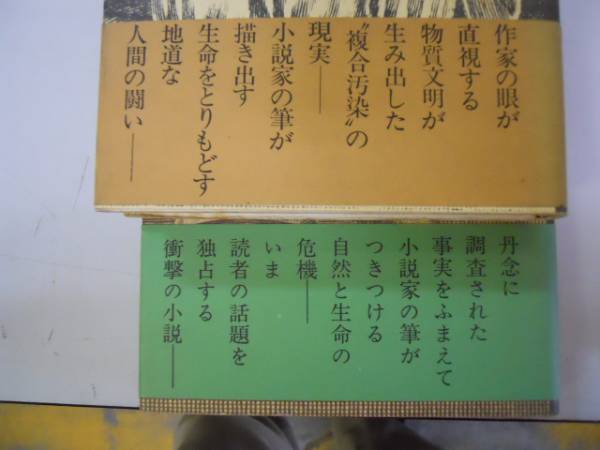 作家の眼が
直視する
物質文明が
生み出した
〝複合汚染〟の
現実――
小説家の筆が
描き出す
生命をとりもどす
地道な
人間の闘い――
丹念に
調査された
事実をふまえて
小説家の筆が
つきつける
自然と生命の
危機――
いま
読者の話題を
独占する
衝撃の小説――